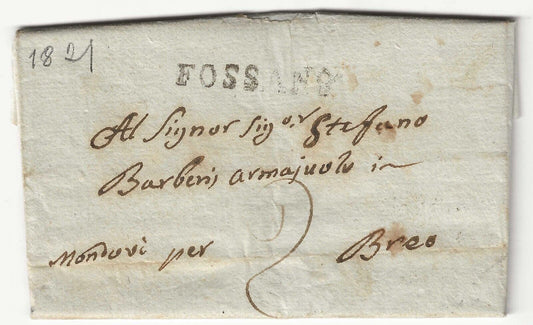 1821
FOSSANO
Al Signor Sig.r Stefano
Barberis armajuolo in
2
Mondovi per Breo